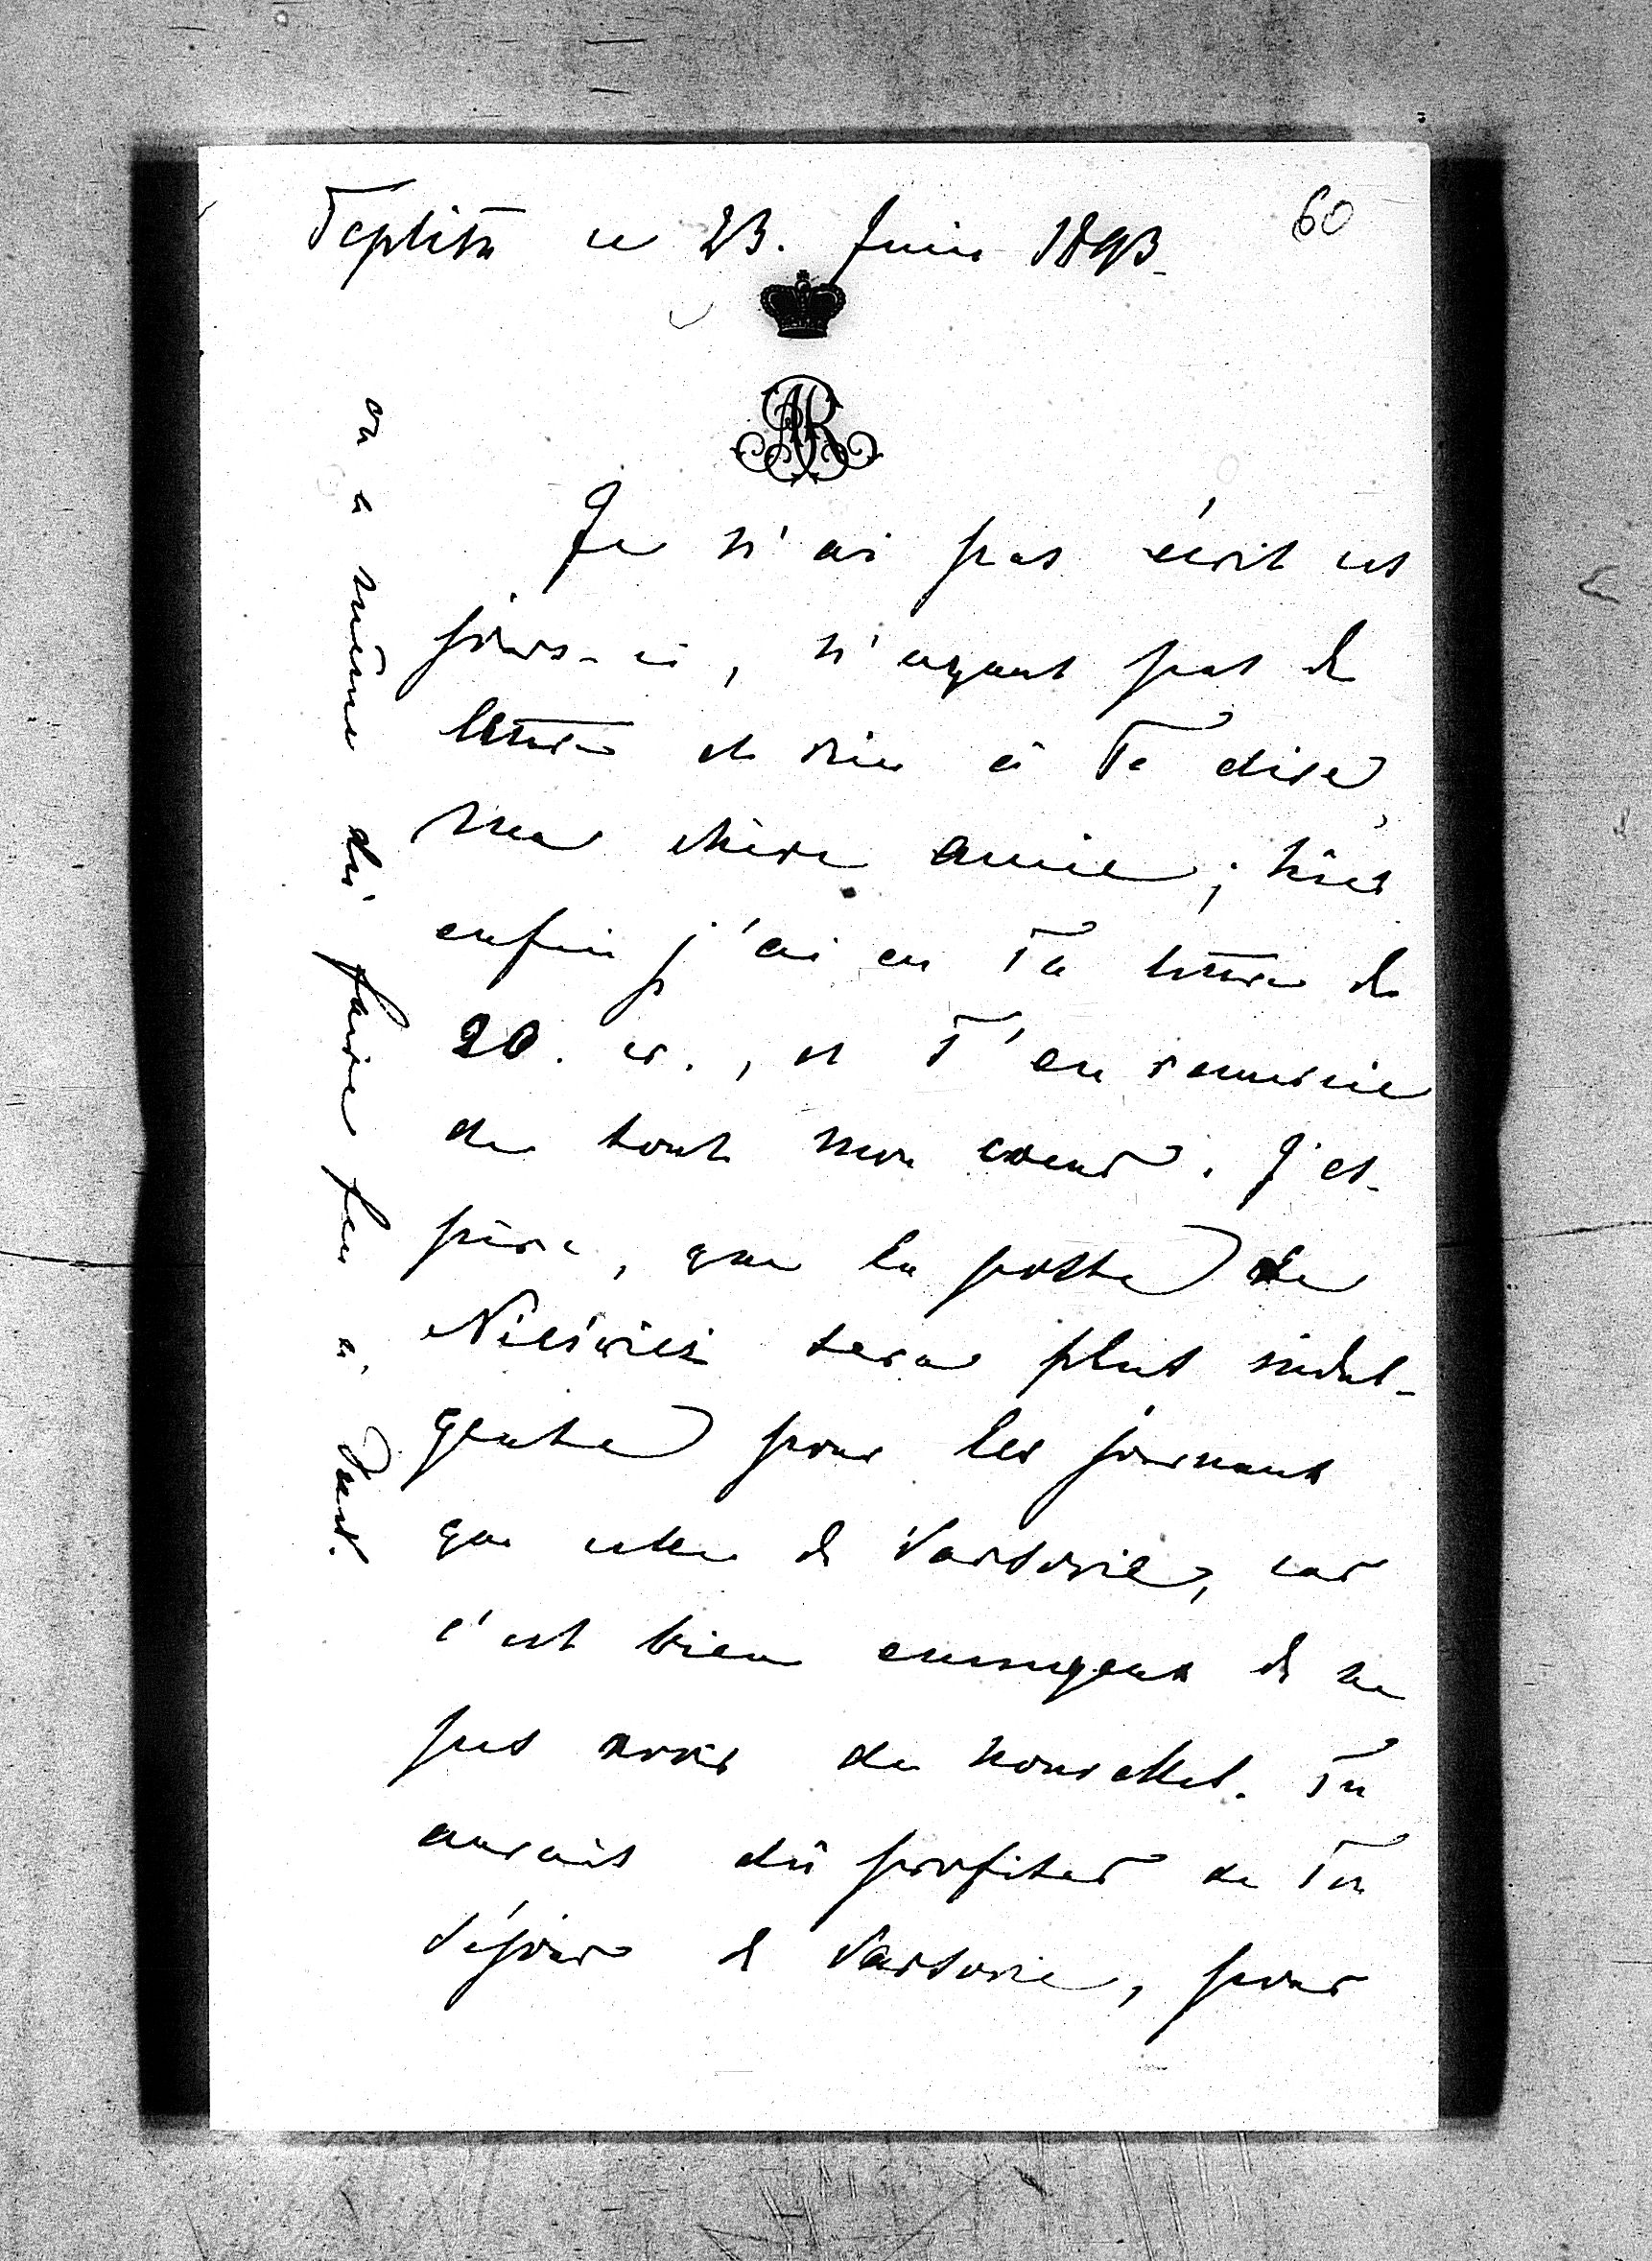 Teplitz ce 23. Juin 1893.
60
AR
Je n'ai pas écrit ces
jours-ci, n'ayant pas de
lettre et rien à Te dire,
ma chère amie; hier
enfin j'ai eu Ta lettre de
20. cr., et T'en remercie
de tout mon coeur. J'es-
père, que la poste de
Nieśwież sera plus indul-
gente pour les journaux
que celle de Varsovie, car
c'est bien ennuyeux de ne
pas avoir de nouvelles. Tu
aurais dû profiter de Ton
séjour de Varsovie, pour
on a même dû faire feu à